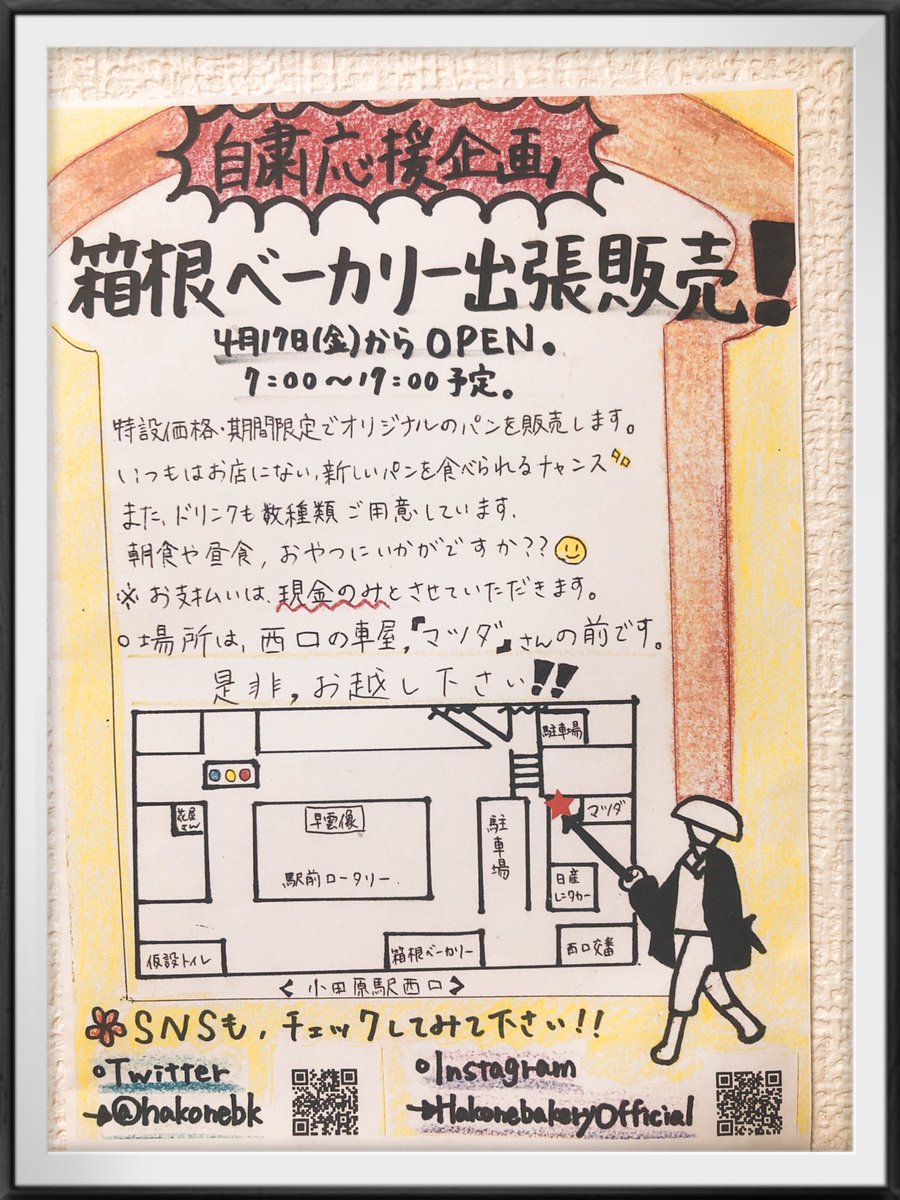 自粛応援企画
箱根ベーカリー出張販売!
4月17日(金)からOPEN。
7:00〜19:00予定。
特設価格・期間限定でオリジナルのパンを販売します。
いつもはお店にない、新しいパンを食べられるチャンス
また、ドリンクも数種類ご用意しています。
朝食や昼食、おやつにいかがですか??
※お支払いは、現金のみとさせていただきます。
○場所は、西口の車屋、『マツダ』さんの前です。
是非、お越し下さい!!
駐車場
花屋さん
早雲像
駐車場
マツダ
駅前ロータリー
日産
レンタカー
仮設トイレ
箱根ベーカリー
西口交番
<小田原駅西口>
SNSも、チェックしてみて下さい!!
○Twitter
→@hakonebk
○Instagram
→HakonebakeryOfficial